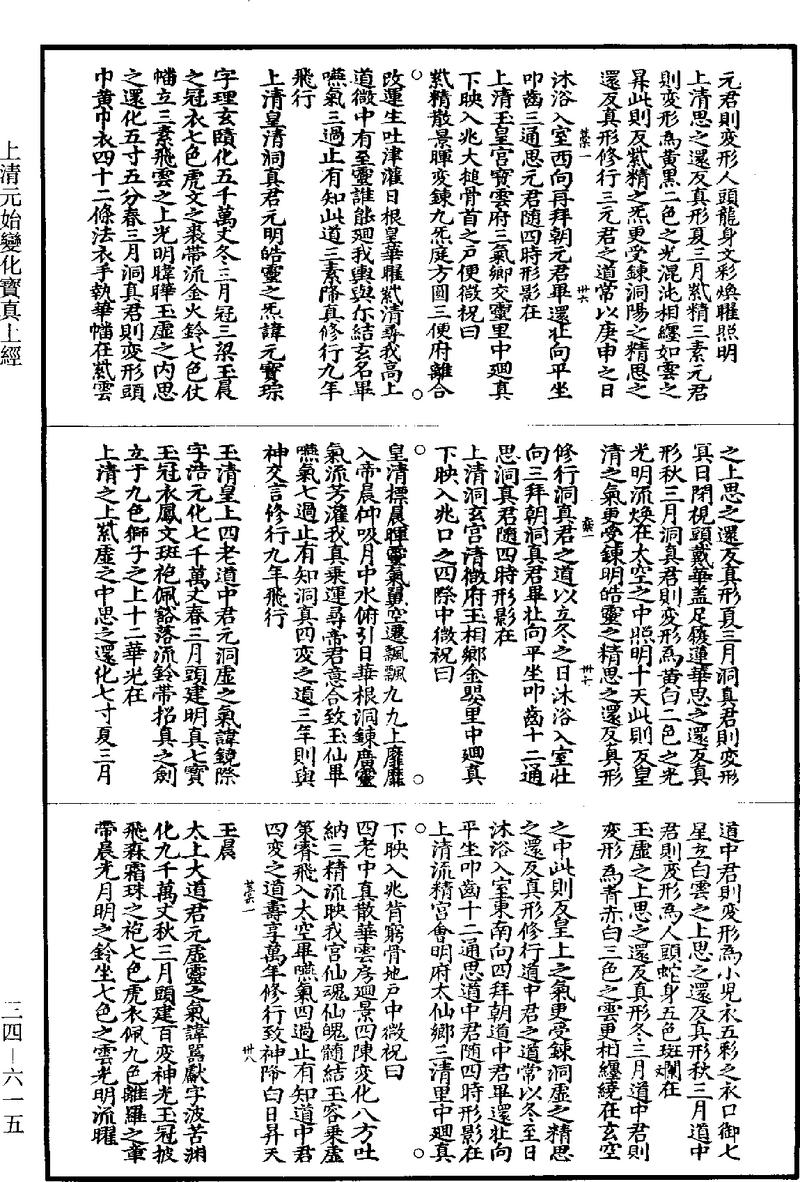 元君則變形人頭龍身文彩煥曜照明
上清思之還反真形夏三月紫精三素元君
則變形為黃黑二色之光混沌相纏如雲之
昇此則反紫精之炁更受鍊洞陽之精思之
還反真形修行三元君之道常以庚申之日
沐浴入室西向再拜朝元君畢還北向平坐
叩齒三通思元君隨四時形影在
上清玉皇宮寶雲府三氣鄉交靈里中廻真
下映入兆大搥骨首之戶便微祝曰
紫精散景暉変鍊九炁庭方圓三便府離合
改運生吐津灌日根皇華曜紫清尋我高上
道微中有至靈誰能廻我輿與尓結玄名畢
嚥氣三過止有知此道三素降真修行九年
飛行
上清皇清洞真君元明皓靈之炁諱元寶琮
字理玄賾化五千萬丈冬三月冠三梁玉晨
之冠衣七色虎文之裘帶流金火鈴七色仗
幡立三素飛雲之上光明暐曄玉虛之内思
之還化五寸五分春三月洞真君則変形頭
巾黃巾衣四十二條法衣手執華幡在紫雲
之上思之還反真形夏三月洞真君則变形
冥目閉視頭戴華盖足躡蓮華思之還反真
形秋三月洞真君則变形為黃白二色之光
光明流煥在太空之中照明十天此則反皇
清之氣更受鍊明皓靈之精思之還反真形
修行洞真君之道以立冬之日沐浴入室北
向三拜朝洞真君畢北向平坐叩齒十二通
思洞真君隨四時形影在
上清洞玄宮清微府玉相鄉金嬰里中廻真
下映入兆口之四際中微祝曰
皇清標晨暉靈氣翼空遷飄飄九九上靡靡
入帝晨仰吸月中水俯引日華根洞鍊廣靈
氣流芳灌我真乘運尋帝君意合致玉仙畢
嚥氣七過止有知洞真四変之道三年則與
神交言修行九年飛行
玉清皇上四老道中君元洞虛之氣諱鏡際
字浩元化七千萬丈春三月頭建明真七寶
玉冠衣鳳文斑袍佩豁落流鈴帶招真之劍
立于九色獅子之上十二華光在
上清之上紫虛之中思之還化七寸夏三月
道中君則变形為小児衣五彩之衣口御七
星立白雲之上思之還反真形秋三月道中
君則变形為人頭蛇身五色斑斕在
玉虛之上思之還反真形冬三月道中君則
变形為青赤白三色之雲更相纏繞在玄空
之中此則反皇上之氣更受鍊洞虛之精思
之還反真形修行道中君之道常以冬至日
沐浴入室東南向四拜朝道中君畢還北向
平坐叩齒十二通思道中君隨四時形影在
上清流精宮會明府太仙鄉三清里中廻真
下映入兆背窮骨地戶中微祝曰
四老中真散華雲房廻景四陳変化八方吐
納三精流映我宮仙魂仙魄髓結玉容乘虛
策霄飛入太空畢嚥氣四過止有知道中君
四变之道壽享萬年修行致神降白日昇天
玉晨
太上大道君元虛靈之氣諱鬺獻字波苦渊
化九千萬丈秋三月頭建百変神光玉冠披
飛森霜珠之袍七色虎衣佩九色離羅之章
帶晨光月明之鈴坐七色之雲光明流曜
上清元始變化寶真上經
三四—六一五